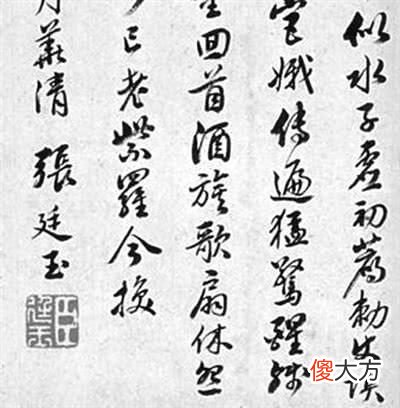 似水子虛初薦勅
宮娥傳遍猛驚醒
回首酒旗歌扇休
已老紫羅今換
華清 張廷玉
傻大方